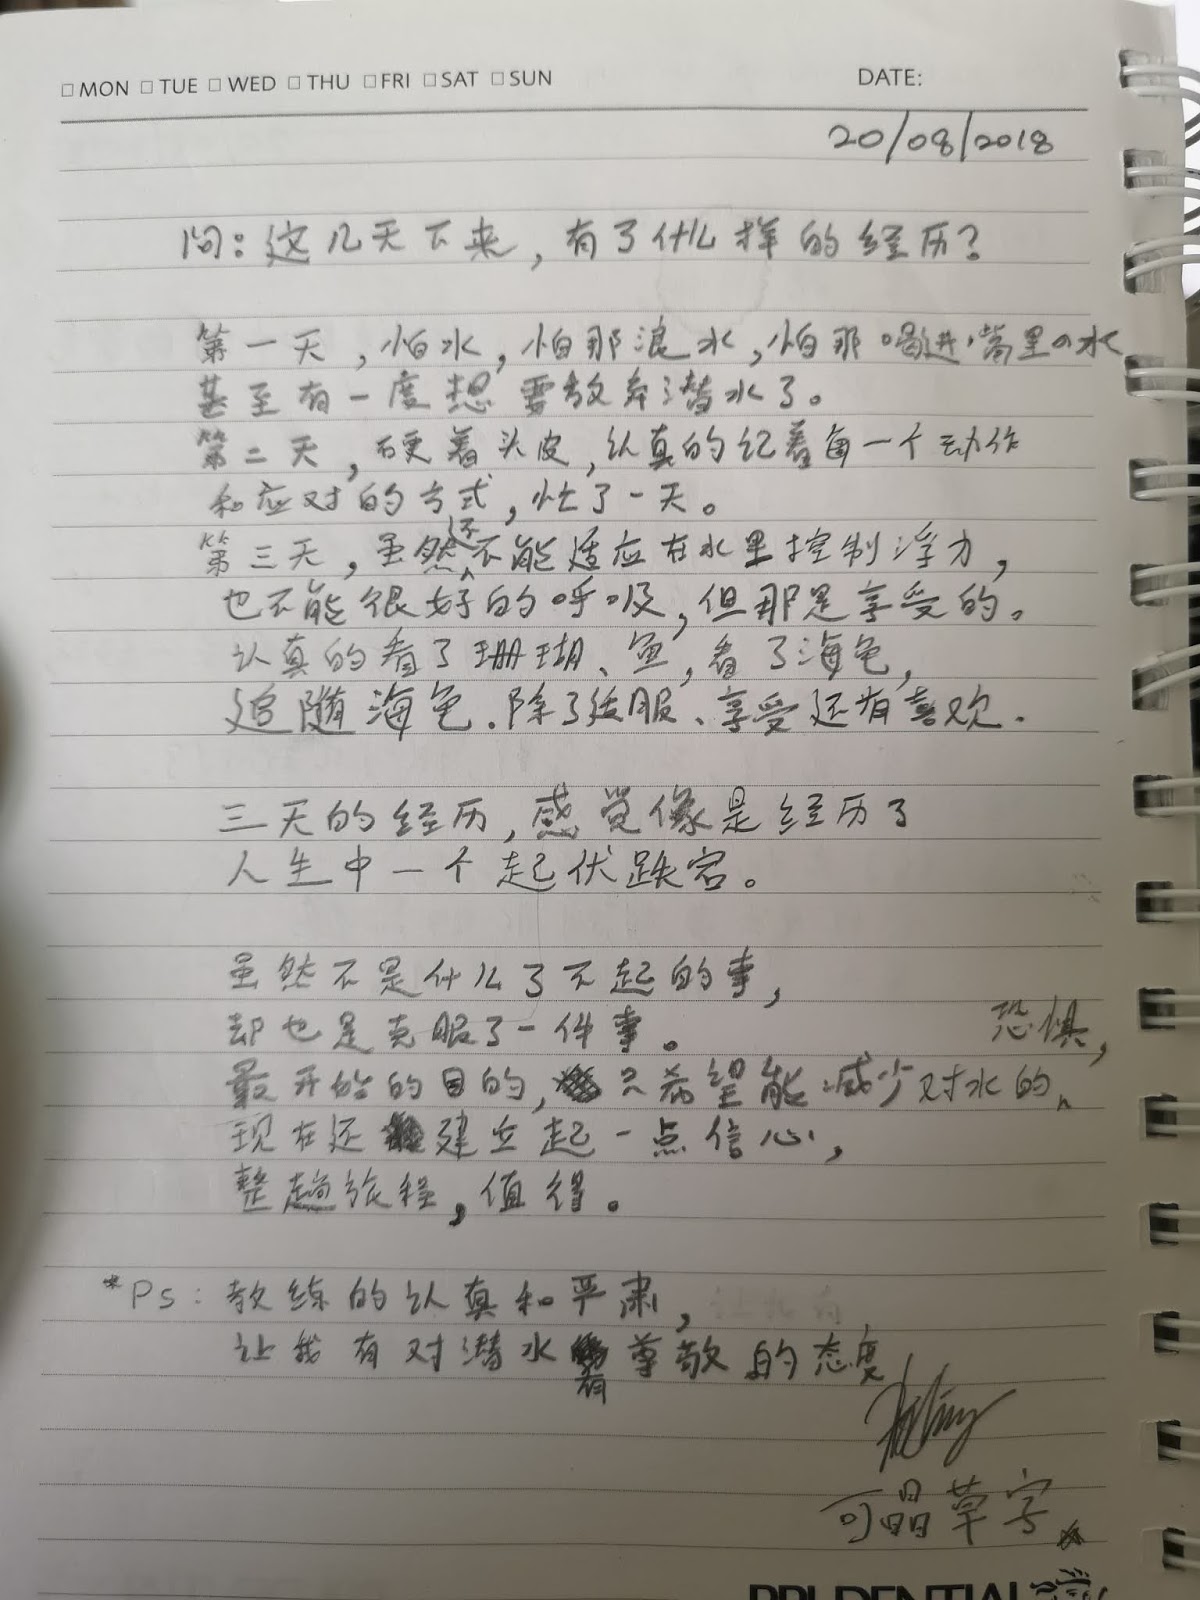 □MON □TUE □WED □THU □FRI □SAT □SUN DATE:
20/08/2018
问：这几天下来，有了什么样的经历？
第一天，怕水，怕那浪水，怕那喝进嘴里の水
甚至有一度想要放弃潜水了。
第二天，硬着头皮，认真的记着每一个动作
和应对的方式，忙了一天。
第三天，虽然还不能适应在水里控制浮力，
也不能很好的呼吸，但那是享受的。
认真的看了珊瑚、鱼，看了海龟，
追随海龟．除了活服、享受还有喜欢．
三天的经历，感觉像是经历了
人生中一个起伏跌宕。
虽然不是什么了不起的事，
却也是克服了一件事。
最开始的目的，只希望能减少对水的恐惧，
现在还建立起一点信心，
整趟旅程，值得。
*Ps：教练的认真和严肃，
让我有对潜水有尊敬的态度
可晶草字
PRUDENTIAL